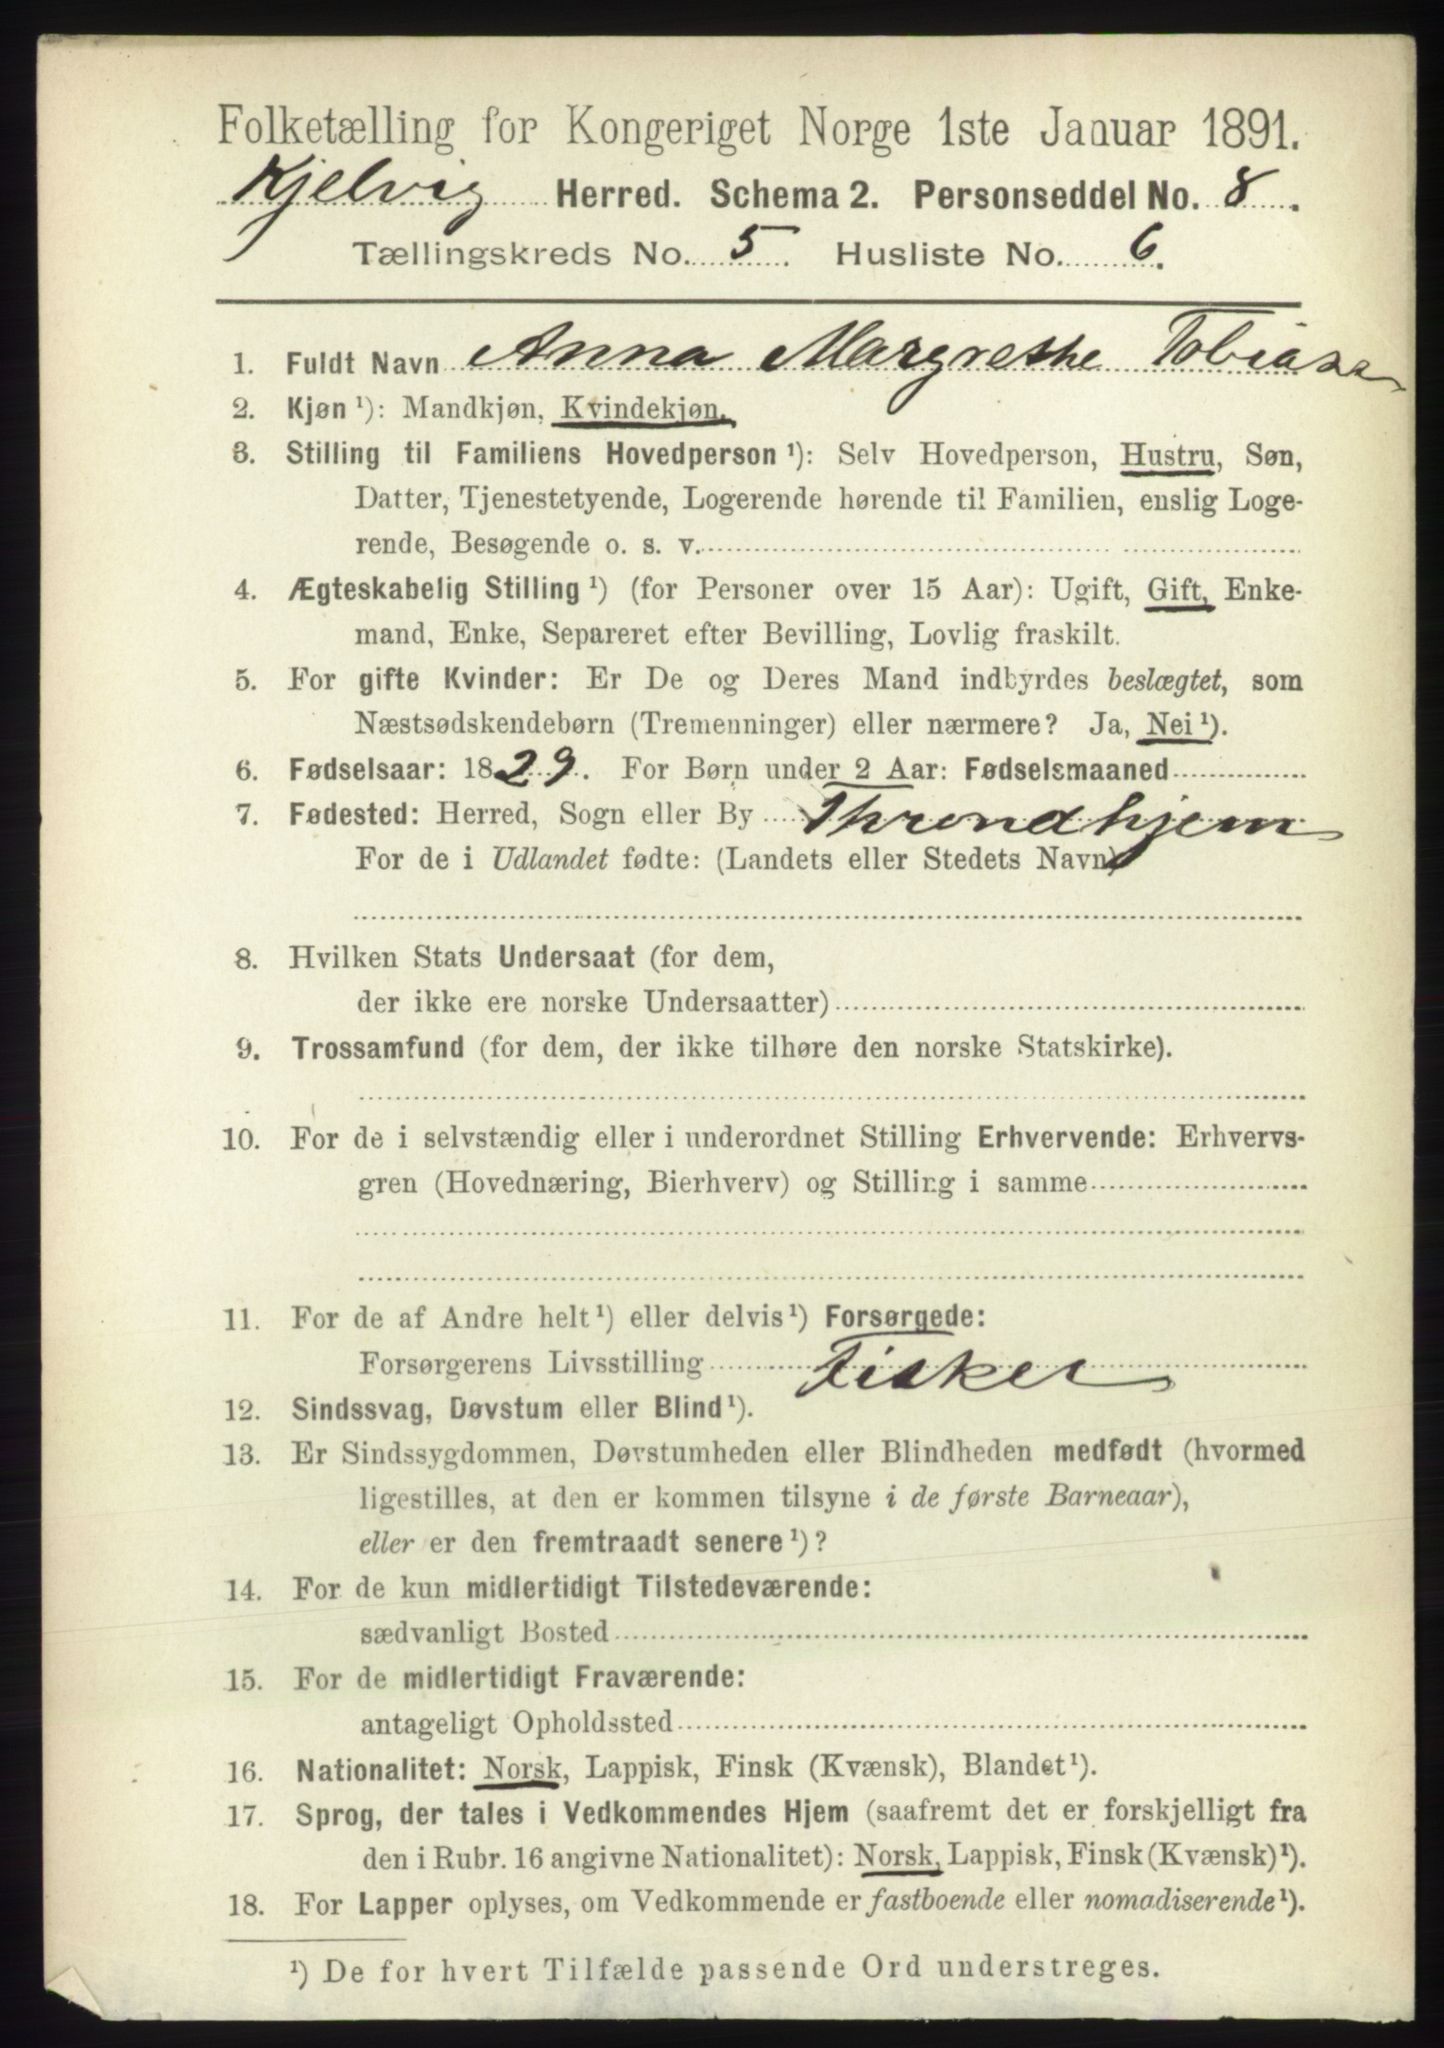 Folketælling for Kongeriget Norge 1ste Januar 1891.
Kjelvig Herred. Schema 2. Personseddel No. 8.
Tællingskreds No. 5. Husliste No. 6.
1. Fuldt Navn Anna Margrethe Tobiasen
2. Kjøn ¹): Mandkjøn, Kvindekjøn.
3. Stilling til Familiens Hovedperson ¹): Selv Hovedperson, Hustru, Søn,
Datter, Tjenestetyende, Logerende hørende til Familien, enslig Loge-
rende, Besøgende o. s. v.
4. Ægteskabelig Stilling ¹) (for Personer over 15 Aar): Ugift, Gift, Enke-
mand, Enke, Separeret efter Bevilling, Lovlig fraskilt.
5. For gifte Kvinder: Er De og Deres Mand indbyrdes beslægtet, som
Næstsødskendebørn (Tremenninger) eller nærmere? Ja, Nei ¹).
6. Fødselsaar: 1829. For Børn under 2 Aar: Fødselsmaaned
7. Fødested: Herred, Sogn eller By Throndhjem
For de i Udlandet fødte: (Landets eller Stedets Navn)
8. Hvilken Stats Undersaat (for dem,
der ikke ere norske Undersaatter)
9. Trossamfund (for dem, der ikke tilhøre den norske Statskirke).
10. For de i selvstændig eller i underordnet Stilling Erhvervende: Erhvervs-
gren (Hovednæring, Bierhverv) og Stilling i samme
11. For de af Andre helt ¹) eller delvis ¹) Forsørgede:
Forsørgerens Livsstilling Fisker
12. Sindssvag, Døvstum eller Blind ¹).
13. Er Sindssygdommen, Døvstumheden eller Blindheden medfødt (hvormed
ligestilles, at den er kommen tilsyne i de første Barneaar),
eller er den fremtraadt senere ¹)?
14. For de kun midlertidigt Tilstedeværende:
sædvanligt Bosted
15. For de midlertidigt Fraværende:
antageligt Opholdssted
16. Nationalitet: Norsk, Lappisk, Finsk (Kvænsk), Blandet ¹).
17. Sprog, der tales i Vedkommendes Hjem (saafremt det er forskjelligt fra
den i Rubr. 16 angivne Nationalitet): Norsk, Lappisk, Finsk (Kvænsk) ¹).
18. For Lapper oplyses, om Vedkommende er fastboende eller nomadiserende ¹).
¹) De for hvert Tilfælde passende Ord understreges.